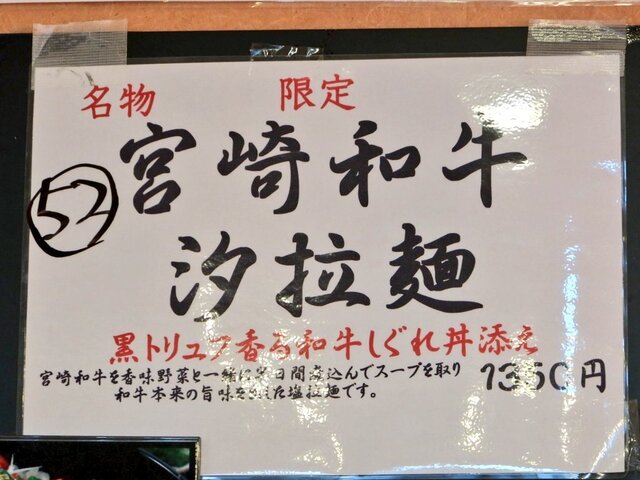 名物 限定
52
宮崎和牛
汐拉麺
黒トリュフ香る和牛しぐれ丼添え
宮崎和牛を香味野菜と一緒に 日間煮込んでスープを取り
和牛本来の旨味を た塩拉麺です。
1350円